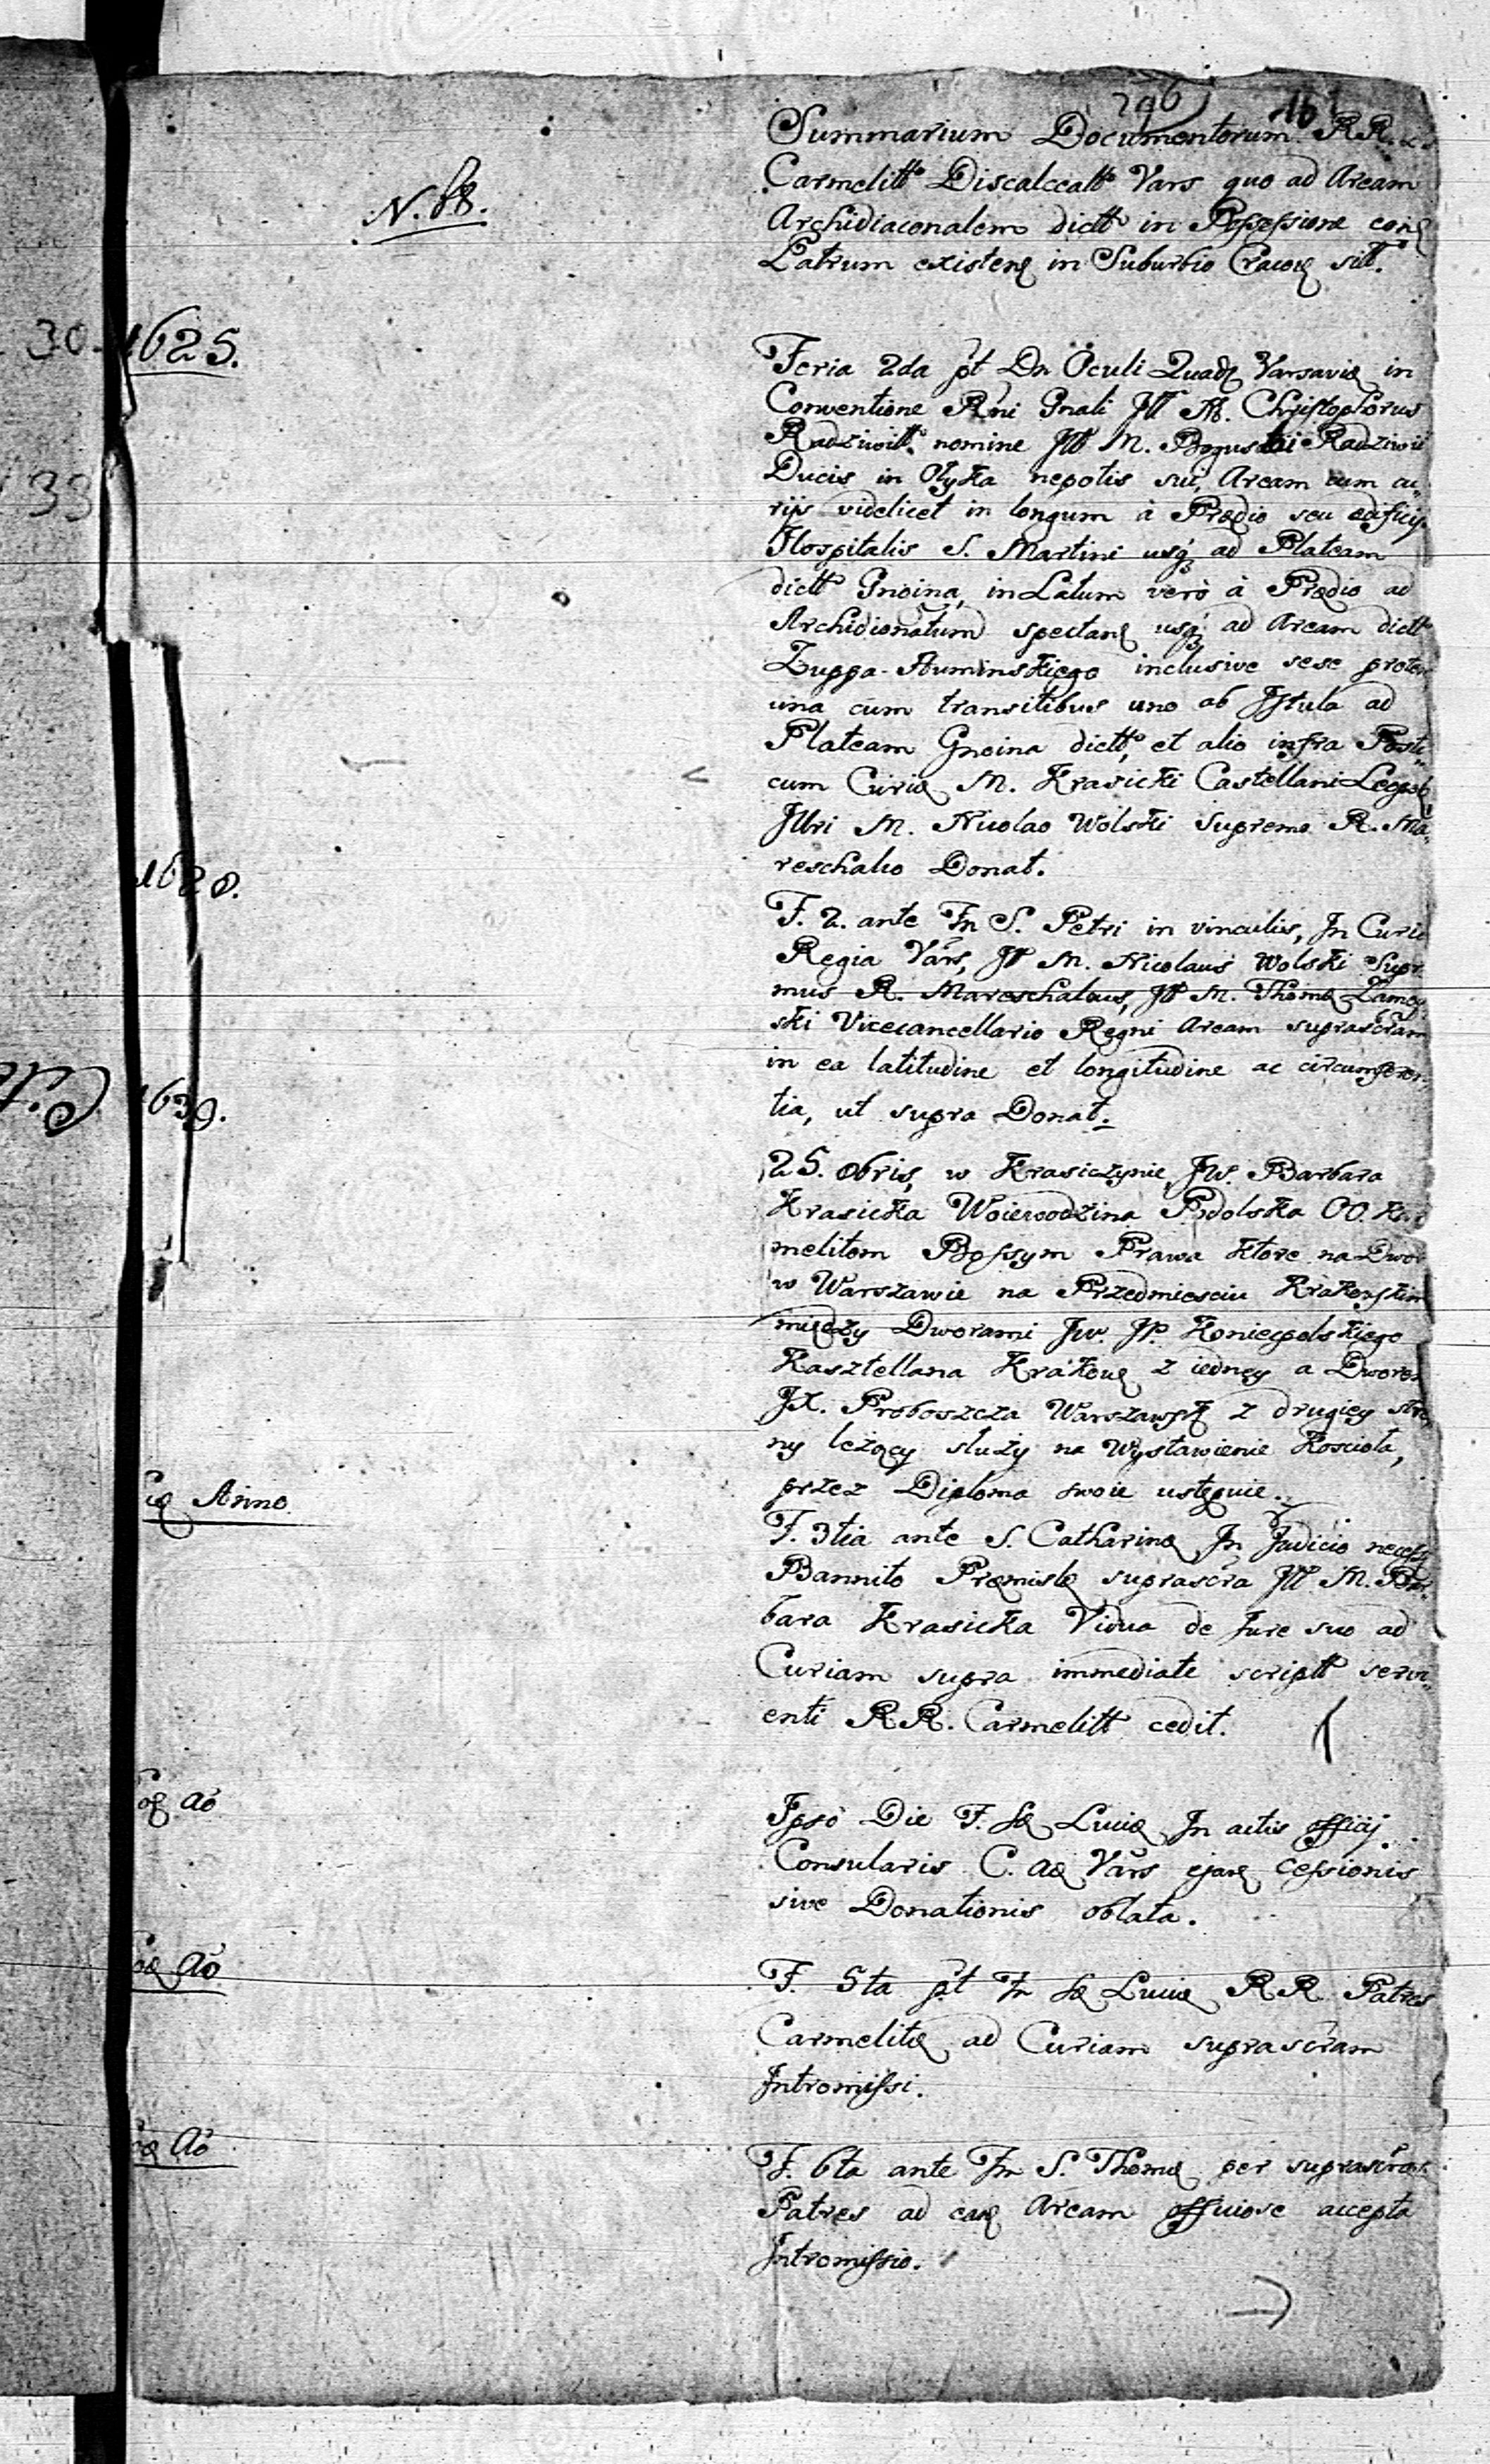 296
Summarium Documentorum RR.
Carmelitt Discalceatt Vars quo ad Aream
N. 88.
Archidiaconalem dictt in Possessione eorq
Patrum existenq in Suburbio Cracovq sitt.
1625.
Feria 2da pt Dn Oculi Quadq Varsaviæ in
Conventione Rni Gnali Jll M. Christophorus
Radziwill nomine Jll M. Boguslai Radziwil
Ducis in Olyka nepotis sui, Aream cum cu„
rijs videlicet in longum à Prædio seu ædificijs
Hospitalis S. Martini usq ad Plateam
dictt Gnoina, in Latum verò à Prædio ad
Archidionatum spectanq usq ad Aream dictt
Zuppa Auminskiego inclusive sese proten
una cum transitibus uno ab Istula ad
Plateam Gnoina dictt, et alio infra Posti„
cum Curiæ M. Krasicki Castellani Leopol
Jllri M. Nicolao Wolski Supremo R. Ma„
reschalco Donat.
1628.
F. 2. ante Fn S. Petri in vinculis, Jn Curia
Regia Vars, Jll M. Nicolaus Wolski Supr
mus R. Mareschalcus, Jll M. Thomæ Zamoy
ski Vicecancellario Regni Aream suprascram
in ea latitudine et longitudine ac circumferen„
tia, ut supra Donat.
1639.
25. 9bris, w Krasiczynie, JW. Barbara
Krasicka Woiewodzina Podolska OO. Kar
melitom Bossym Prawa ktore na Dwor
w Warszawie na Przedmiesciu Krakowskim
między Dworami Jw. JP. Koniecpolskiego
Kasztellana Krakowq z iedney a Dworem
JX. Proboszcza Warszawsk z drugiey stro
ny leżący służy na Wystawienie Kosciola,
przez Diploma swoie ustępuie.
Anno
F. 3tia ante S. Catharinæ Jn Judicio necess
Bannito Præmislæ suprascra Jll M. Bar„
bara Krasicka Vidua de Jure suo ad
Curiam supra immediate scriptt servi„
enti RR. Carmelitt cedit.
Ao
Ipso Die F. Sæ Luciæ Jn actis officij
Consularis C. Aæ Vars ejusq Cessionis
sive Donationis oblata.
Ao
F. 5ta pt Fn Sæ Luciæ RR Patres
Carmelitæ ad Curiam suprascram
Intromissi.
Ao
F. 6ta ante Fm S. Thomæ per suprascros
Patres ad eanq Aream officiose accepta
Intromissio.